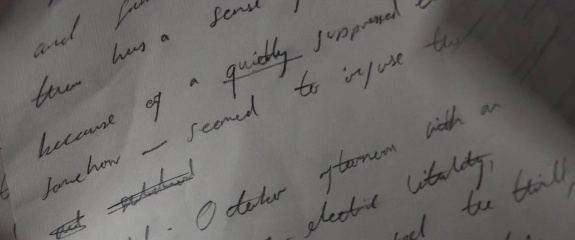 and
sense
there was a
because of a quickly suppressed
somehow — seemed to infuse the
October afternoon with an
electric vitality,
the thrill,